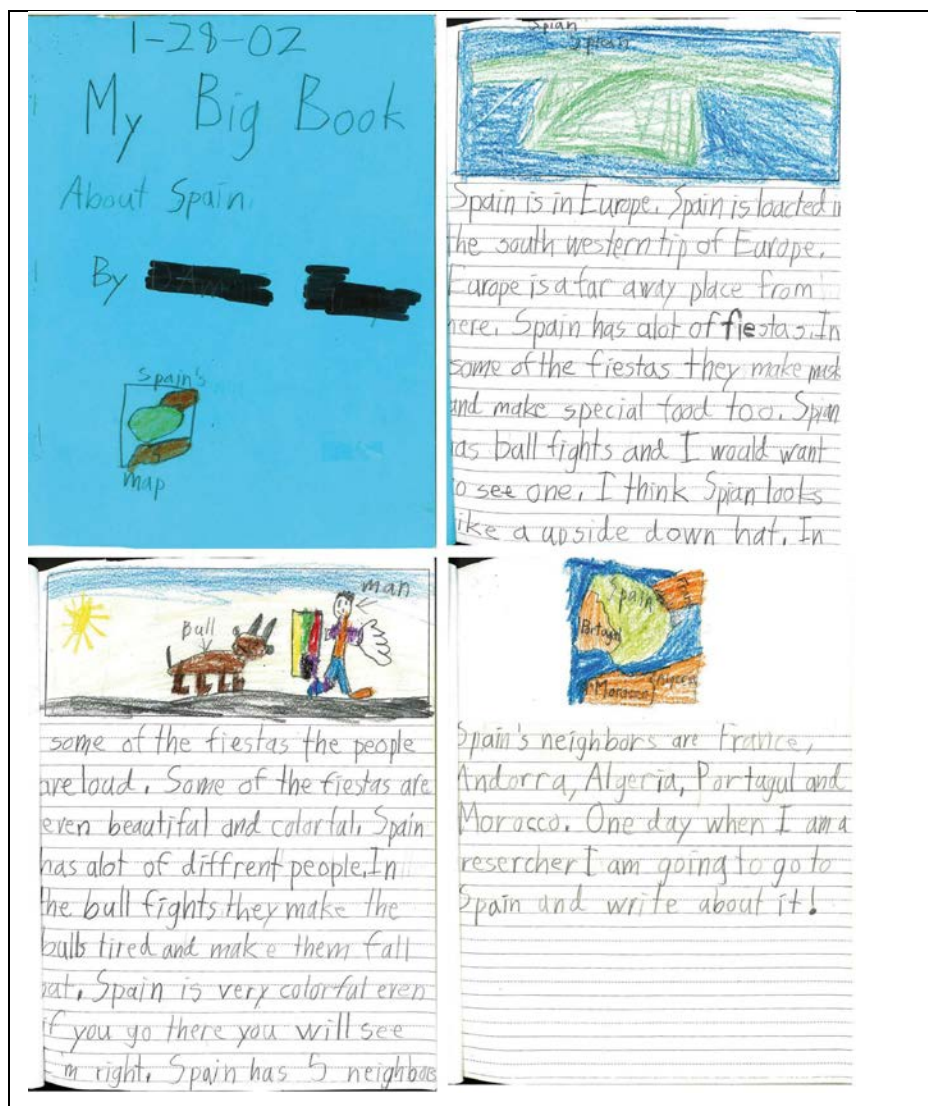 1-28-02
My Big Book
About Spain.
By
Spain's
map
Spian
Spian
Spain is in Europe. Spain is loacted in
the south western tip of Europe.
Europe is a far away place from
here. Spain has alot of fiestas. In
some of the fiestas they make mask
and make special food too. Spian
has bull fights and I would want
to see one. I think Spian looks
like a upside down hat. In
Bull
man
some of the fiestas the people
are loud. Some of the fiestas are
even beautiful and colorful. Spain
has alot of diffrent people. In
the bull fights they make the
bulls tired and make them fall
Spain is very colorful even
if you go there you will see
I'm right. Spain has 5 neighbors
Spain
Portugal
Morocco
Spain's neighbors are France,
Andorra, Algeria, Portagul and
Morocco. One day when I am a
resercher I am going to go to
Spain and write about it!